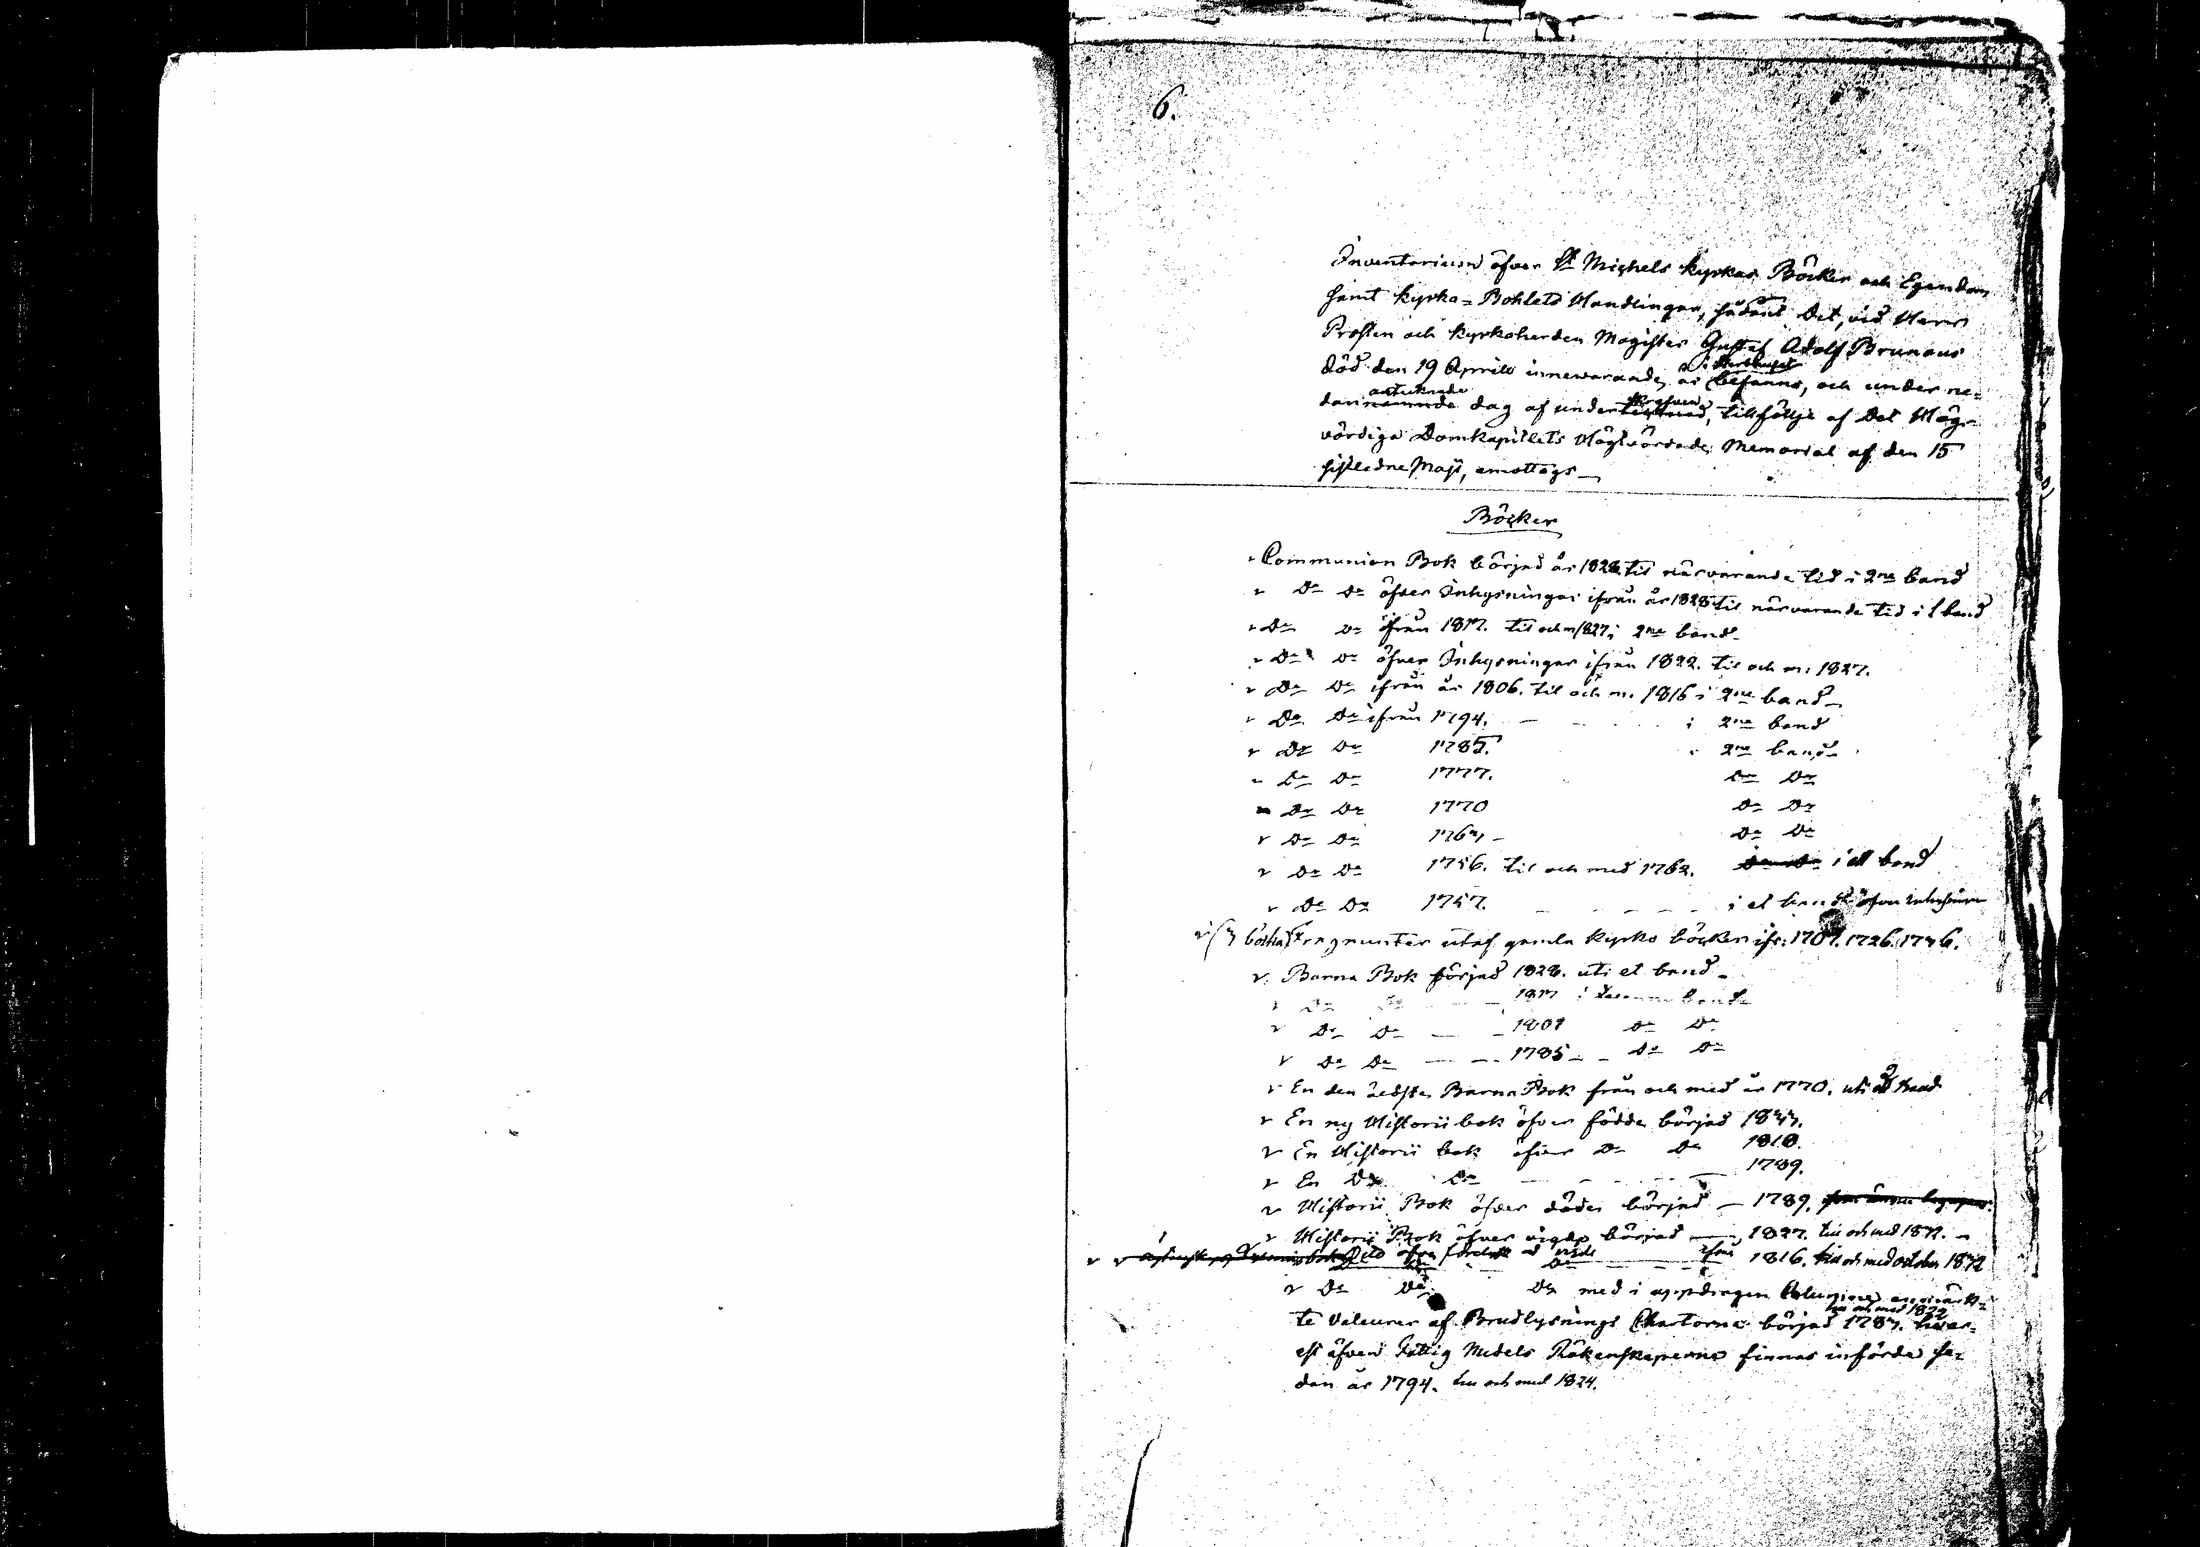 6.
Inventorium öfver St Michels kyrkas Böcker och Egendom
samt kyrko-Bohlets Handlingar, sådant det, vid Herr
Prosten och kyrkoherden Magister Gustaf Adolf Brunous
död den 19 Aprilis innevarande år befanns, och under ne-
antecknade
dannämnde dag af undertecknad, till följe af Det Hög-
vördiga Domkapitlets Högtvördade Memorial af den 15
sistledne Maji, emottogs —
Böcker
Communion Bok börjad år 1828 til närvarande tid i 2ne band
Do Do öfver Inhysningar ifrån år 1828 til närvarande tid i 1 band
Do Do ifrån 1817. til och m 1827 i 2ne band
Do Do öfver Inhysningar ifrån 1822. til och m. 1827.
Do Do ifrån år 1806. til och m. 1816 i 2ne band
Do Do ifrån 1794. — i 2ne band
Do Do 1785. i 2ne band
Do Do 1777. Do Do
Do Do 1770 Do Do
Do Do 1767 — Do Do
Do Do 1756. til och med 1762. Do Do i ett band
Do Do 1757. — i et band öfver
Fragmenter utaf gamla kyrko böcker ifr: 1707. 1726. 1736.
Barna Bok börjad 1828. uti et band —
Do Do — 1817 i samma band
Do Do — 1801 Do Do
Do Do — 1785 — Do Do
En den äldsta Barna Bok från och med år 1770. uti 2 band
En ny Historii bok öfver födde börjad 1833.
En Historii bok öfver Do Do 1818.
En Do Do — 1789.
Historii Bok öfver döde börjad — 1789.
Historii Bok öfver vigde börjad — 1827. till och med 1872. —
Dito öfver vigde ifrån 1816. till och med october 1872
Do Do Do med i uppdragen Columne anmärk-
till och med 1822
te Valeurer af Brudlysnings Chartorna börjad 1787. hvar-
est äfven Fattig Medels Räkenskaperne finnas införde se-
dan år 1794. till och med 1824.